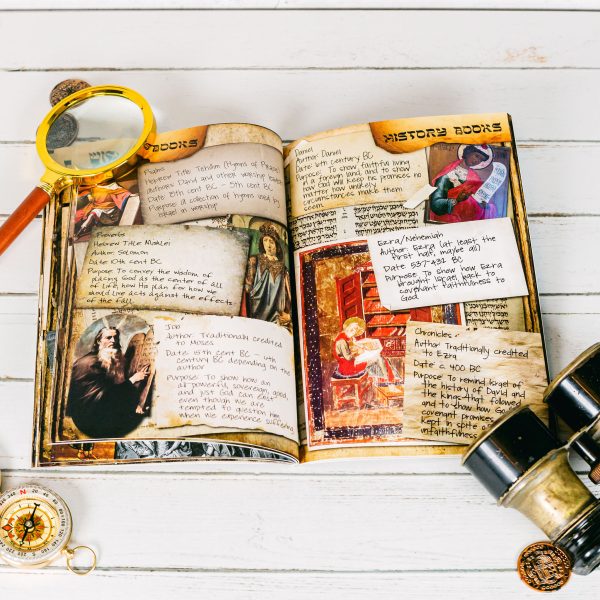 BOOKS
Psalms
Hebrew Title: Tehilim (Hymns of Praise)
Authors: David and other worship leaders
Date: 15th cent BC - 5th cent BC
Purpose: A collection of hymns used by
Israel in worship
Proverbs
Hebrew Title: Mishlei
Author: Solomon
Date: 10th cent BC
Purpose: To convey the wisdom of
placing God as the center of all
of life, how He plan for how we
should live acts against the effects
of the fall
Job
Author: Traditionally credited
to Moses
Date: 15th cent BC - 4th
century BC depending on the
author
Purpose: To show how an
all powerful, sovereign, good,
and just God can exist
even though we are
tempted to question Him
when we experience suffering
HISTORY BOOKS
Daniel
Author: Daniel
Date: 6th century BC
Purpose: To show faithful living
in a foreign land, and to show
how God will keep his promises no
matter how unlikely
circumstances make them
seem
Ezra/Nehemiah
Author: Ezra (at least the
first half, maybe all)
Date: 537-432 BC
Purpose: To show how Ezra
brought Israel back to
covenant faithfulness to
God
Chronicles
Author: Traditionally credited
to Ezra
Date: c. 400 BC
Purpose: To remind Israel of
the history of David and
the kings that followed
and to show how God's
covenant promises
kept in spite of
unfaithfulness